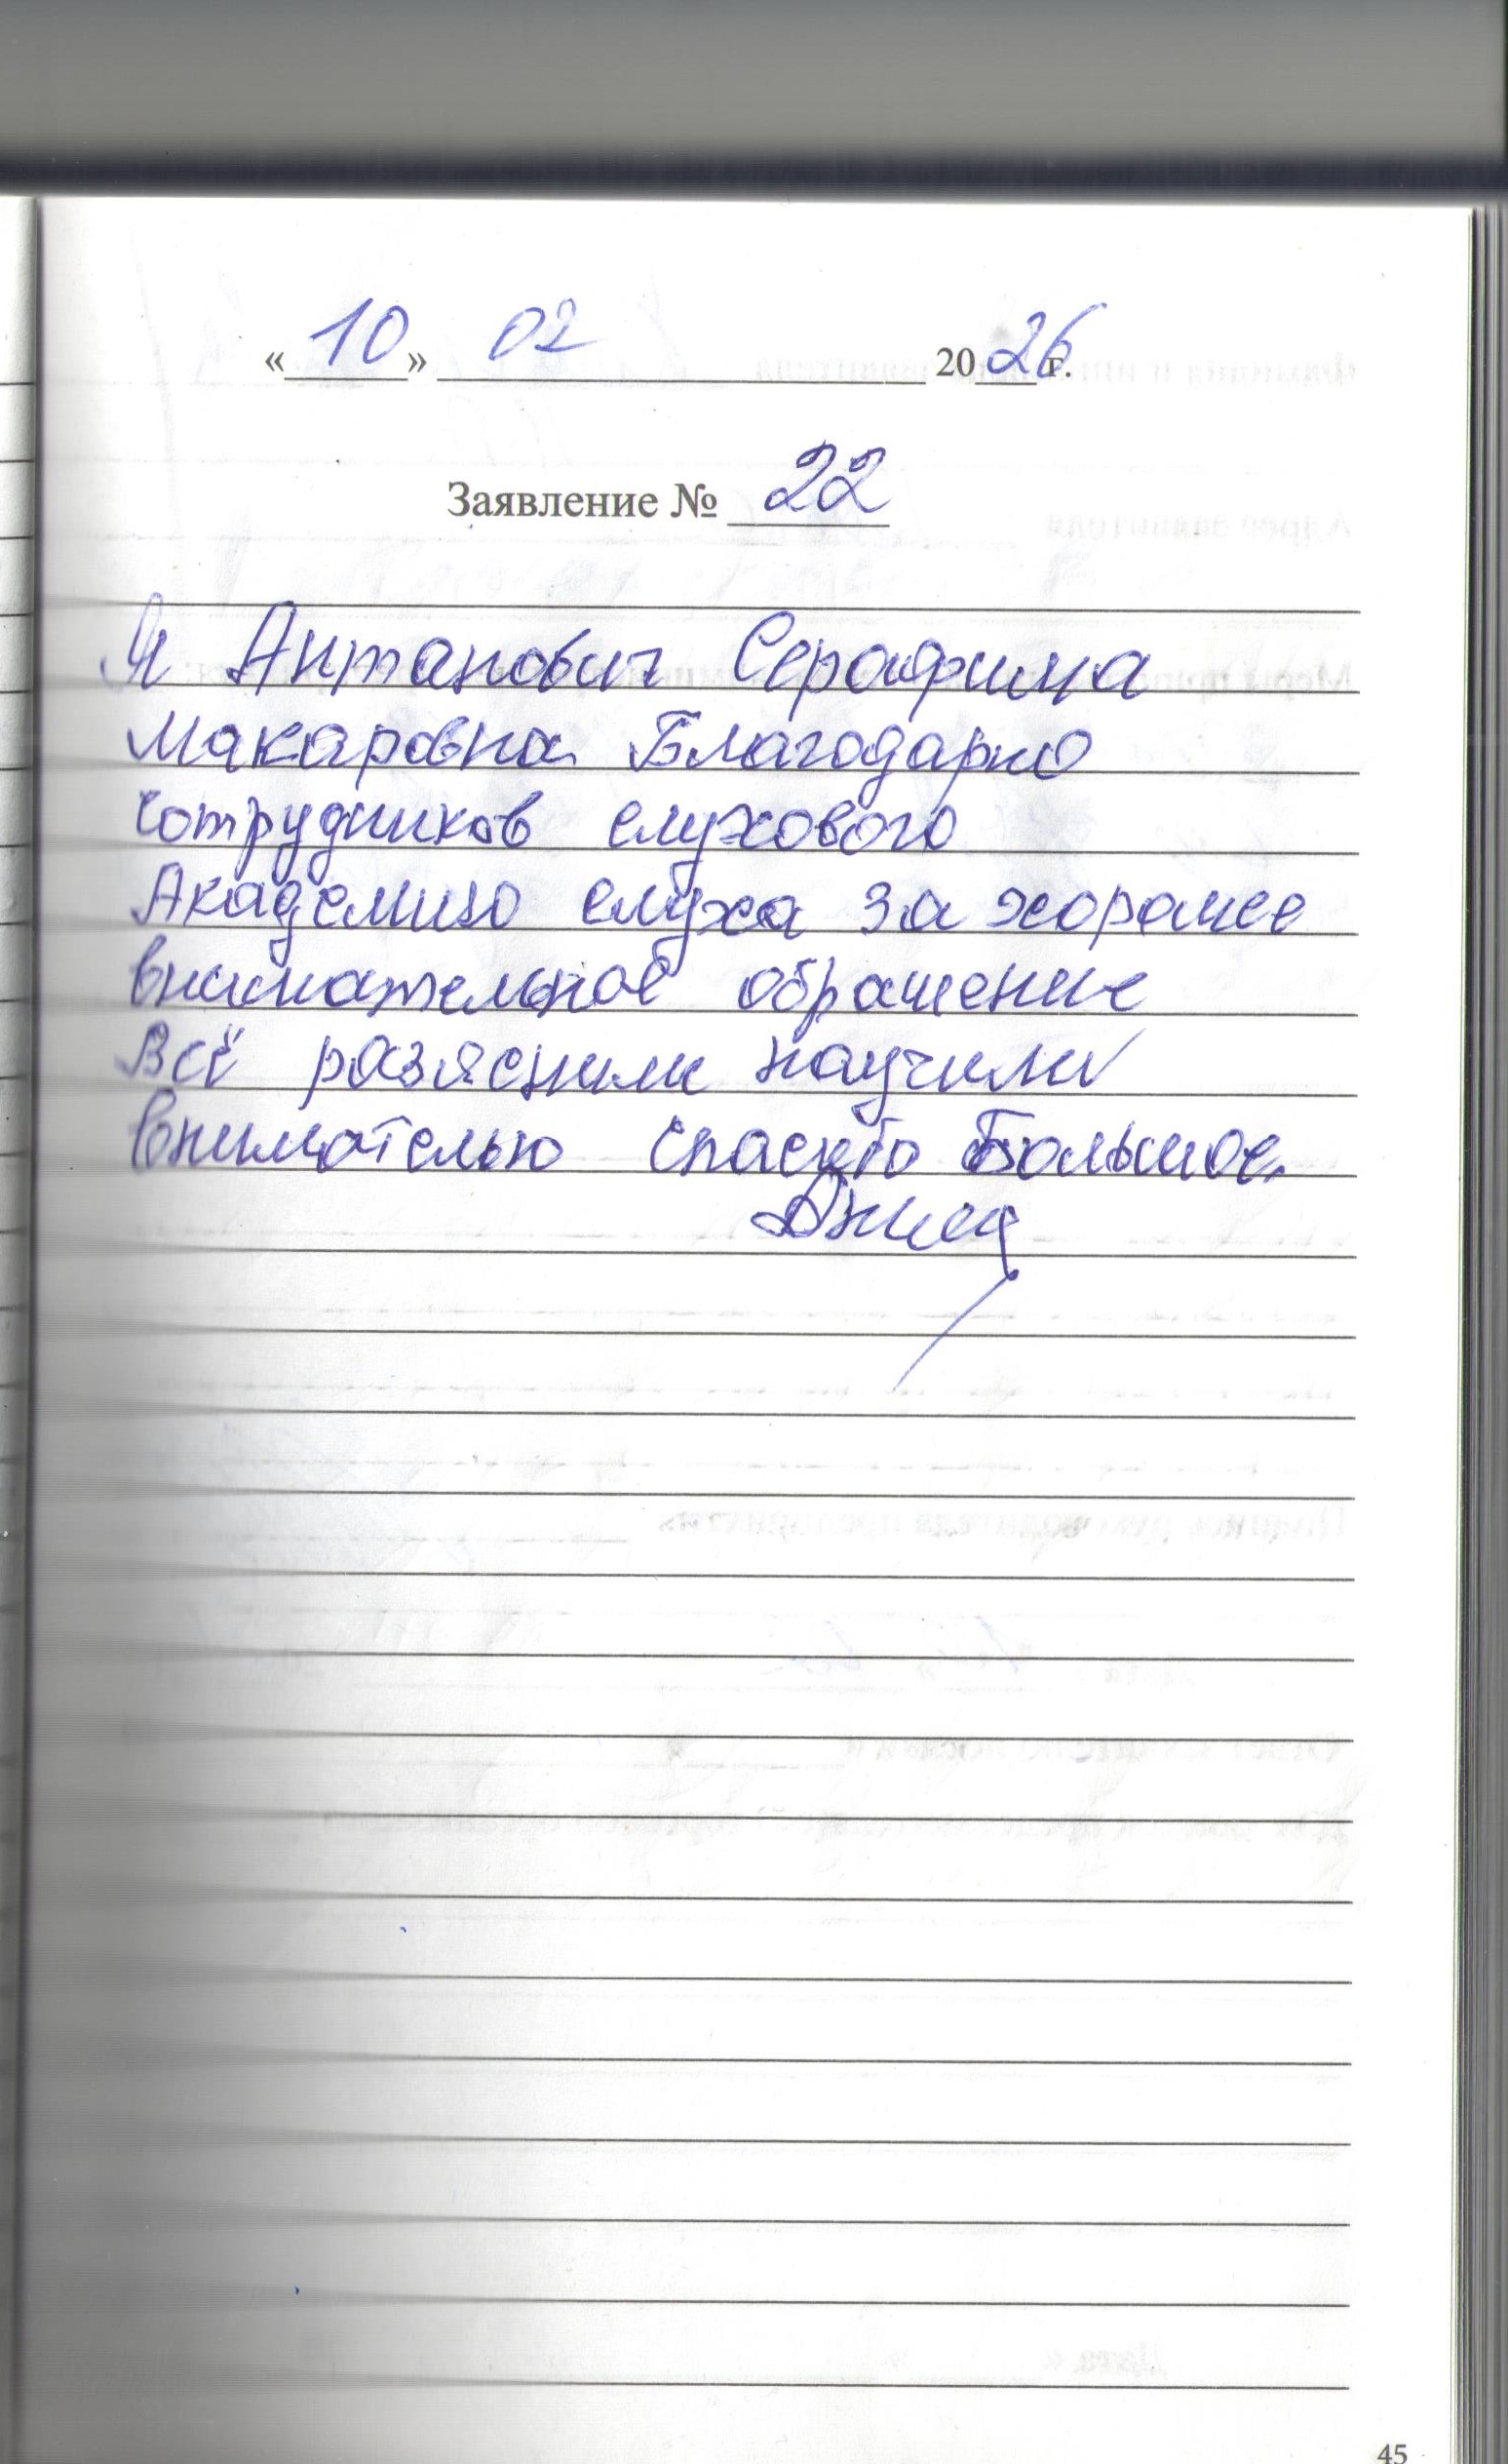 « 10 » 02 2026 г.
Заявление № 22
Я Антанович Серафима
Макаровна Благодарю
сотрудников слухового
Академию слуха за хорошее
внимательное обрашение
Всё разяснили научили
внимательно спасибо Большое.
45